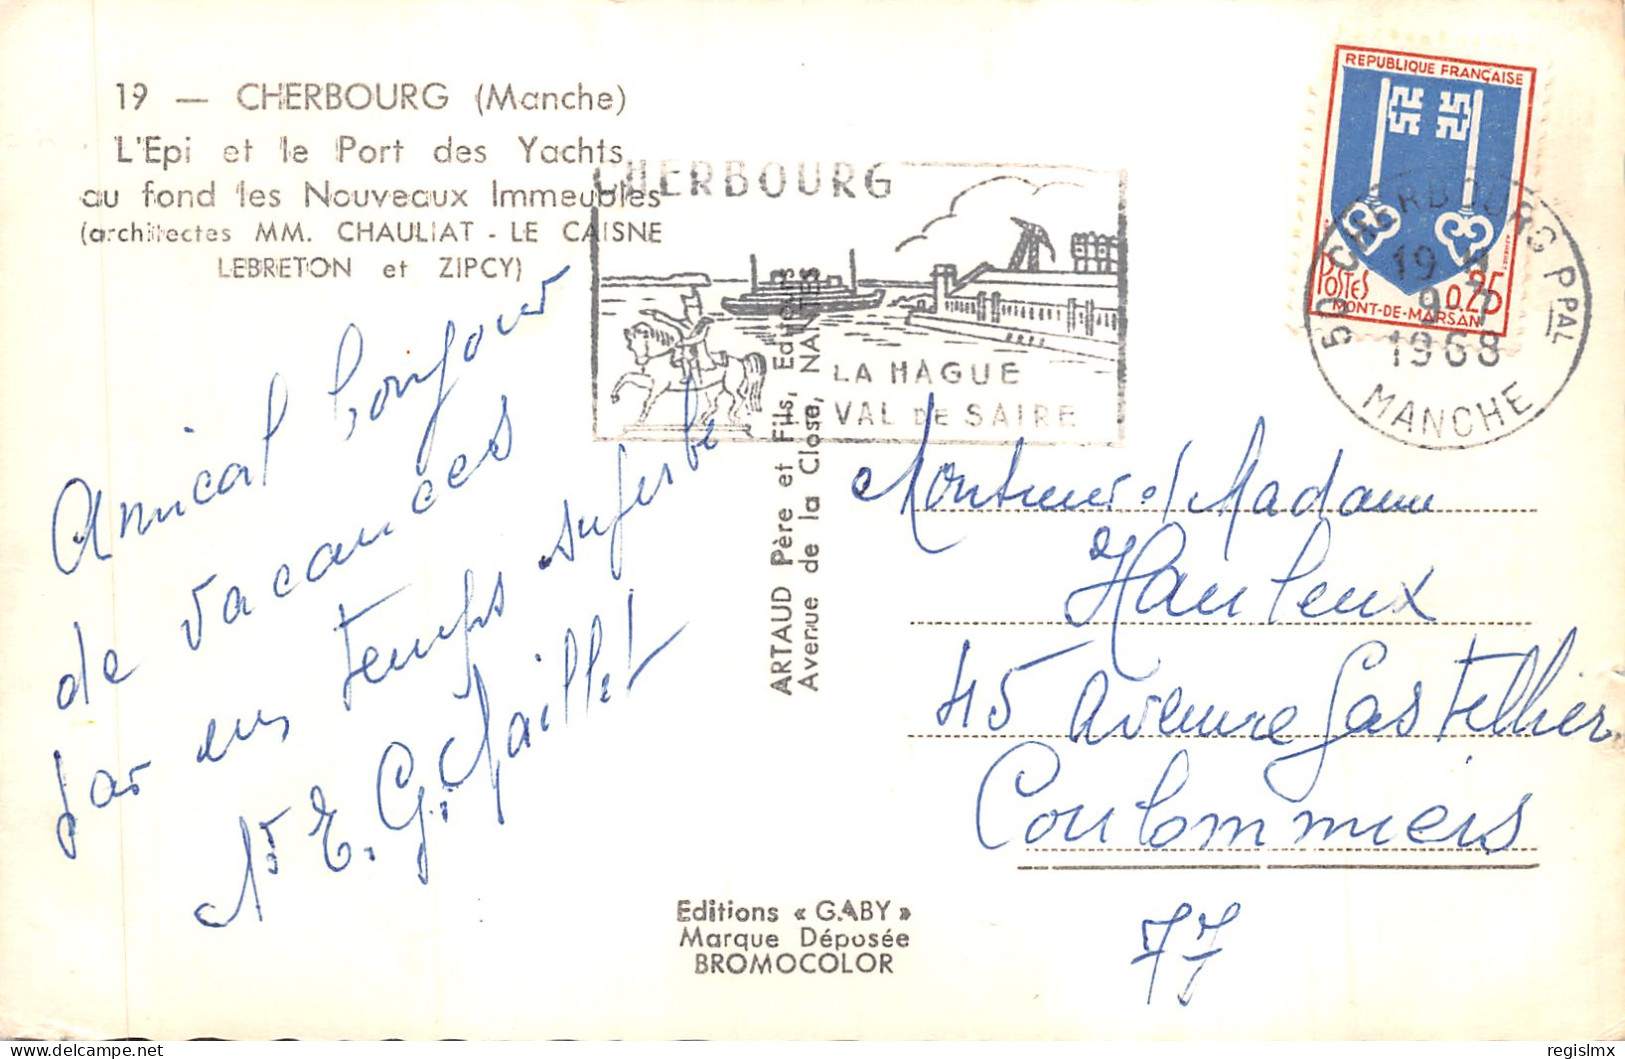 19 — CHERBOURG (Manche)
L'Epi et le Port des Yachts
au fond les Nouveaux Immeubles
(architectes MM. CHAULIAT - LE CAISNE
LEBRETON et ZIPCY)
CHERBOURG
LA HAGUE
VAL DE SAIRE
REPUBLIQUE FRANÇAISE
POSTES
0,25
MONT-DE-MARSAN
50 CHERBOURG PPAL
19 H
9 - 7
1968
MANCHE
Amical bonjour
de vacances
par un temps superbe
E. G. Maillet
ARTAUD Père et Fils, Editeurs
Avenue de la Close, NANTES
Monsieur et Madame
Hauleux
45 Avenue Gastellier
Coulommiers
77
Editions « GABY »
Marque Déposée
BROMOCOLOR
delcampe.net
regislmx